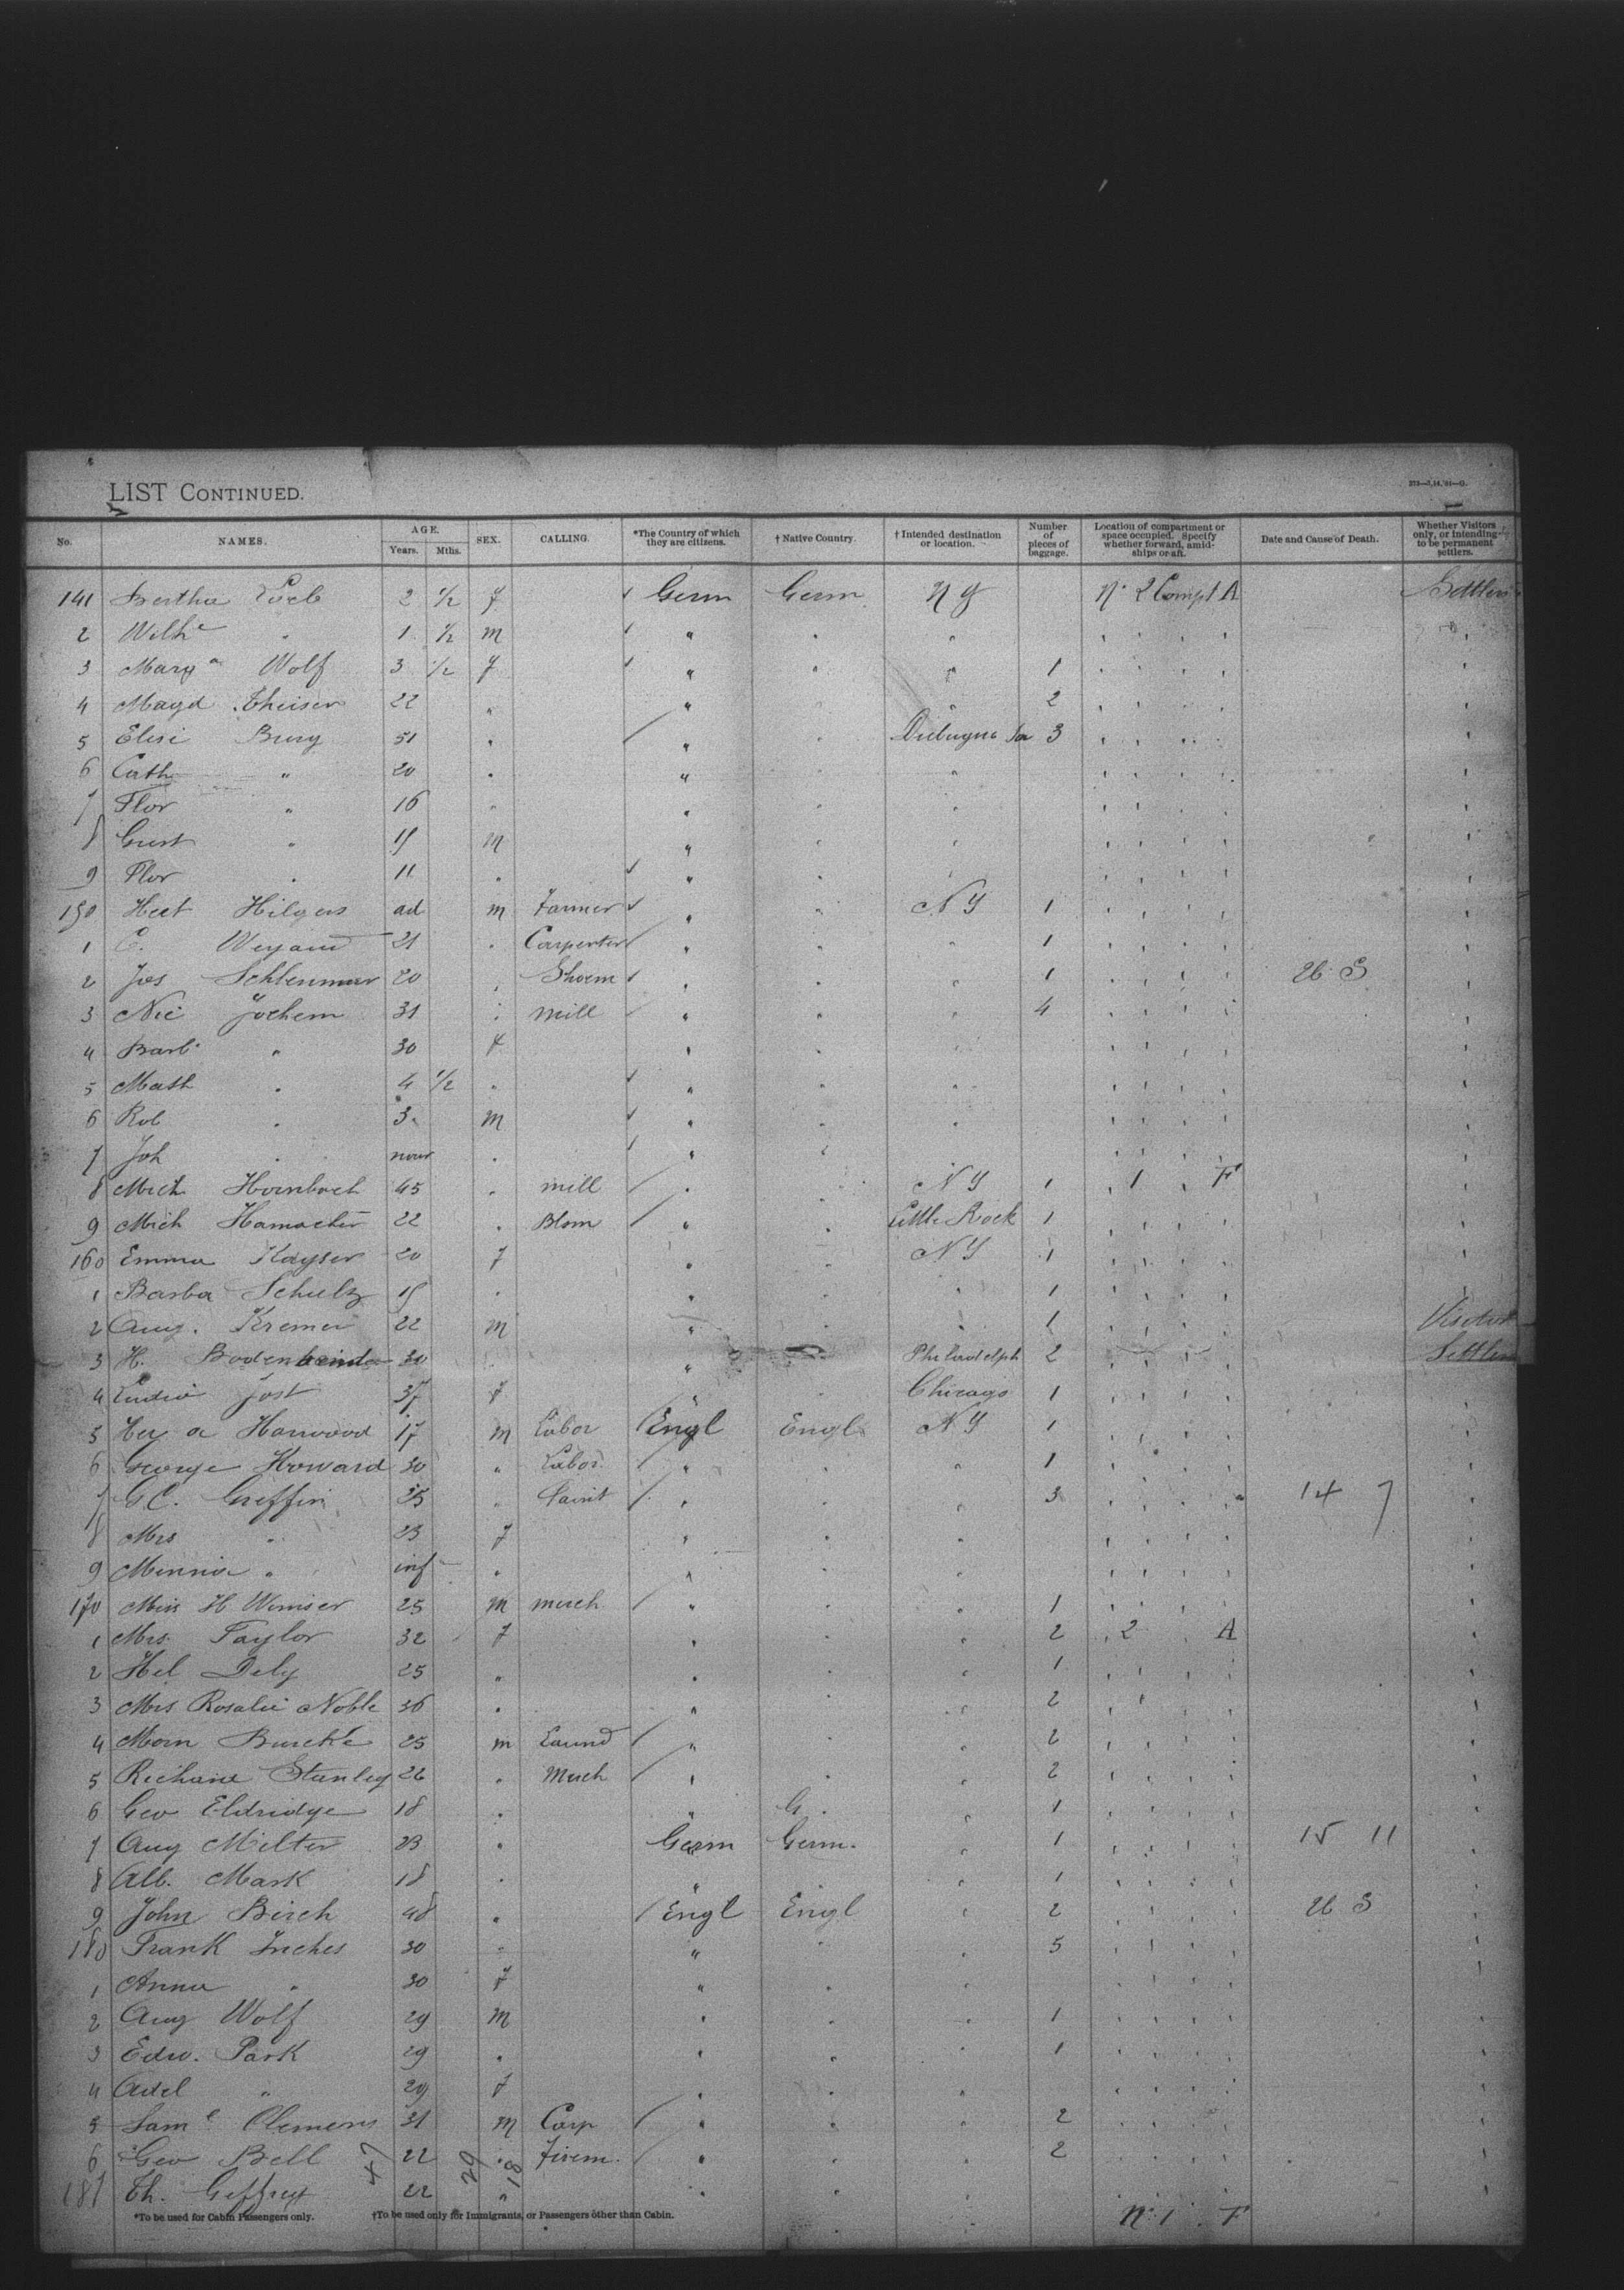 LIST CONTINUED.
373—3,14,'91—G.
No. NAMES. AGE. Years. Mths. SEX. CALLING. *The Country of which they are citizens. † Native Country. † Intended destination or location. Number of pieces of baggage. Location of compartment or space occupied. Specify whether forward, amidships or aft. Date and Cause of Death. Whether Visitors only, or intending to be permanent settlers.
141 Bertha Loeb 2 1/2 f Germ Germ N Y No 2 Compt A Settlers
2 Wilhe " 1 1/2 m " " "
3 Marga Wolf 3 1/2 f " " " 1
4 Magd Theisen 22 " " " 2
5 Elise Burg 51 " " " 3
6 Cath " 20 " " "
7 Flor " 16 " " "
8 Gust " 15 m " " "
9 Flor " 11 " " "
150 Hect Hilgers ad m Farmer " " N Y 1
1 C. Weyand 21 " Carpenter " " " 1
2 Jos 20 " Shoem " " " 1 26 S
3 Nic Jochem 31 " mill " " " 4
4 Barb " 30 f " " "
5 Math " 4 1/2 " " " "
6 Rob " 3 m " " "
7 Joh " " " " "
8 Mich Hornbach 45 " mill " " N Y 1 " 1 " F
9 Mich Hamacher 22 " Blsm " " Little Rock 1
160 Emma Kayser 20 f " " N Y 1
1 Barba Schulz 15 " " " " 1
2 Aug. Kremer 22 m " " " 1 Visitor
3 H. Bodenbender 30 " " Philadelph 2 Settlers
4 Jost 37 f " " Chicago 1
5 Harwood 17 m Labor Engl Engl N Y 1
6 George Howard 30 " Labor " " " 1
7 G C. Greffin 35 " Paint " " " 3 14 7
8 Mrs " 23 f " " "
9 Minnie " inf " " " "
170 H 25 m merch " " " 1
1 Mrs. Taylor 32 f " " " 2 " 2 " A
2 Hel Dely 25 " " " " 1
3 Mrs Rosalie Noble 36 " " " " 2
4 Morn Burcke 25 m " " " 2
5 Richard Stanley 26 " Merch " " " 2
6 Geo Eldridge 18 " " G. " 1
7 Aug Milter 23 " Germ Germ. " 1 15 11
8 Alb. Mark 18 " " " " 1
9 John Birch 48 " Engl Engl " 2 26 S
180 Frank Inches 30 " " " " 5
1 Anna " 30 f " " "
2 Aug Wolf 29 m " " " 1
3 Edw. Park 29 " " " " 1
4 Adel " 29 f " " "
5 Saml Clemens 31 m Carp " " " 2
6 Geo Bell 22 " Firem. " " " 2
187 Th. Geffrey 22 " " " " No 1 " F
47 29 18
*To be used for Cabin Passengers only. †To be used only for Immigrants, or Passengers other than Cabin.